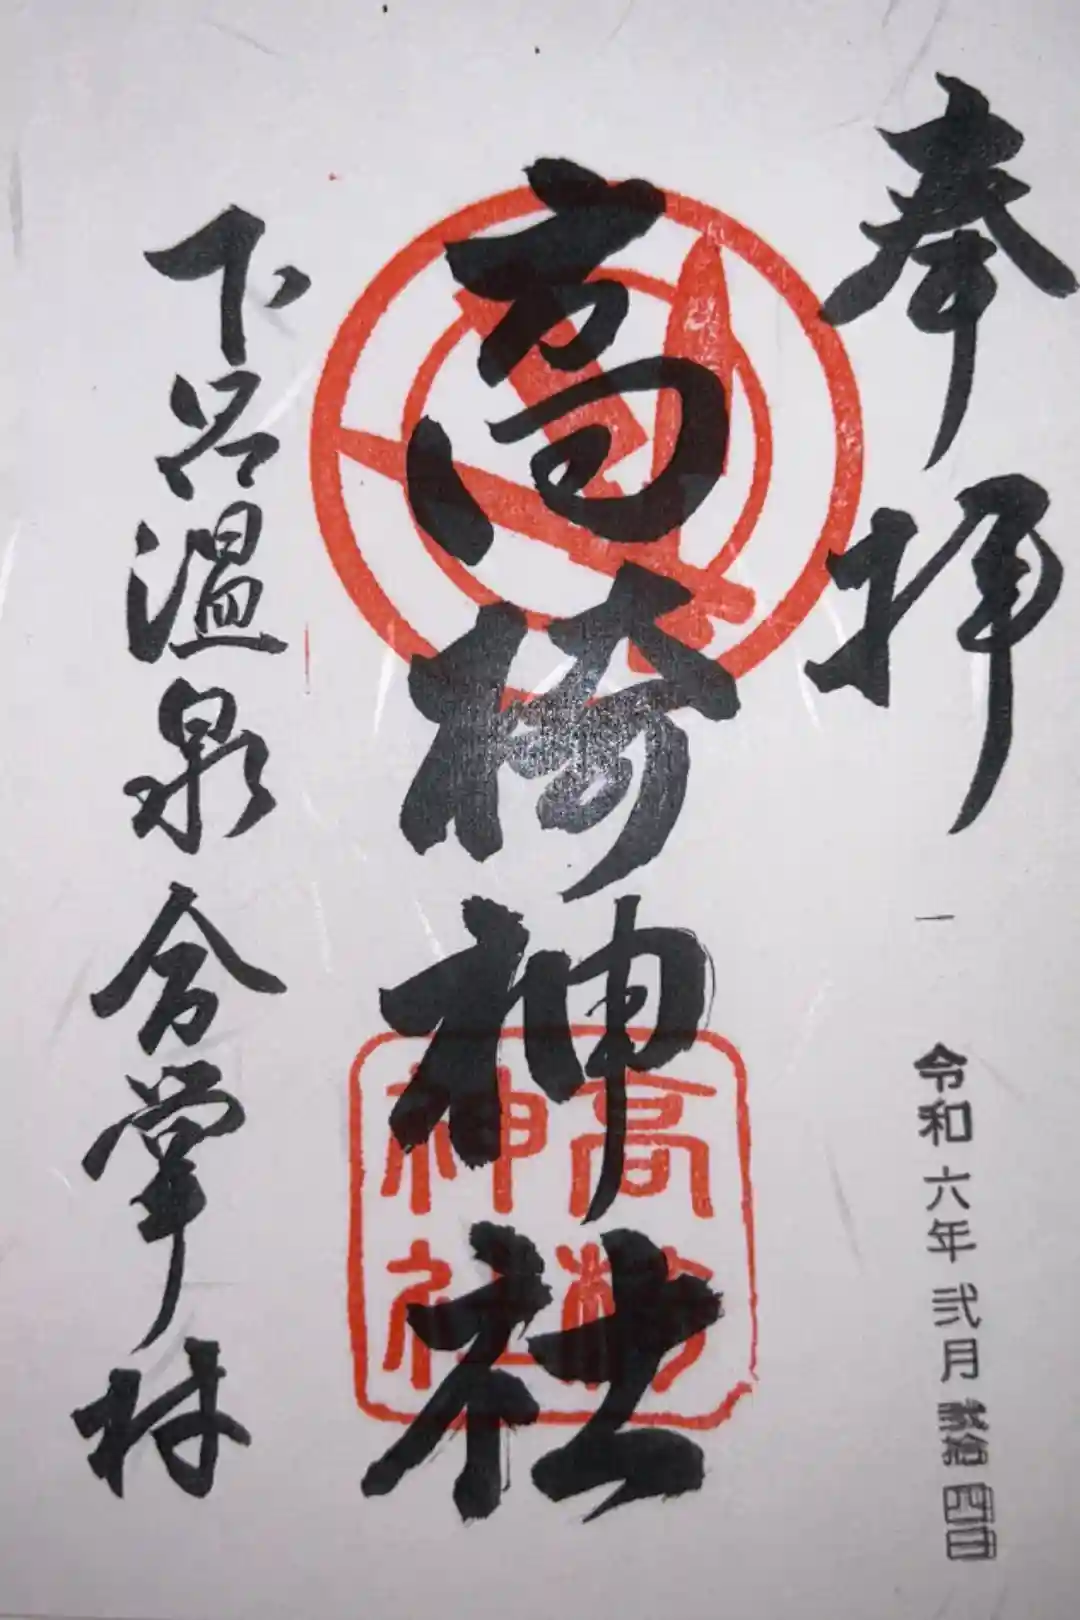 奉拝
令和六年弐月弐拾四日
高椅神社
高椅
神社
下呂温泉合掌村